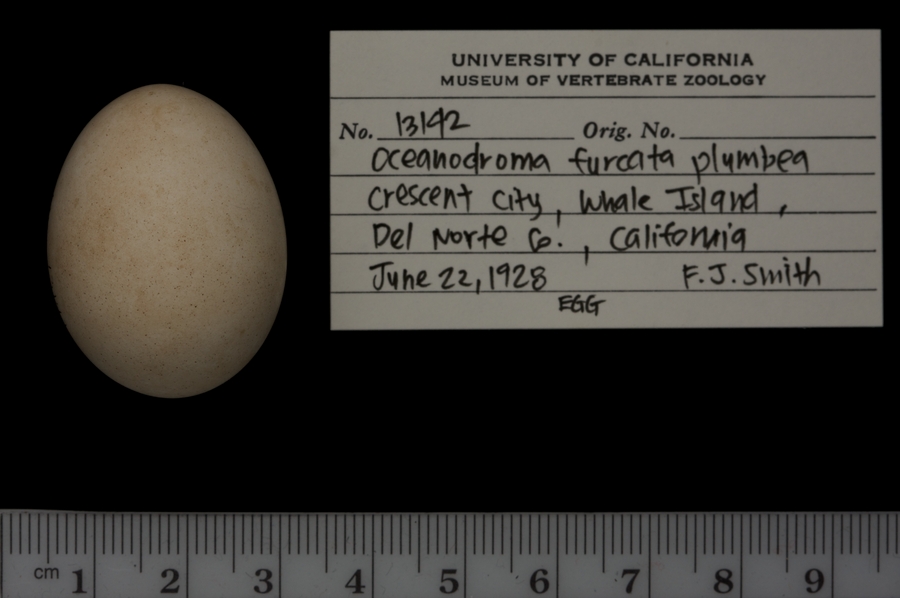 UNIVERSITY OF CALIFORNIA
MUSEUM OF VERTEBRATE ZOOLOGY
No. 13142 Orig. No.
Oceanodroma furcata plumbea
Crescent City, Whale Island,
Del Norte Co., California
June 22, 1928 F.J. Smith
EGG
cm 1 2 3 4 5 6 7 8 9